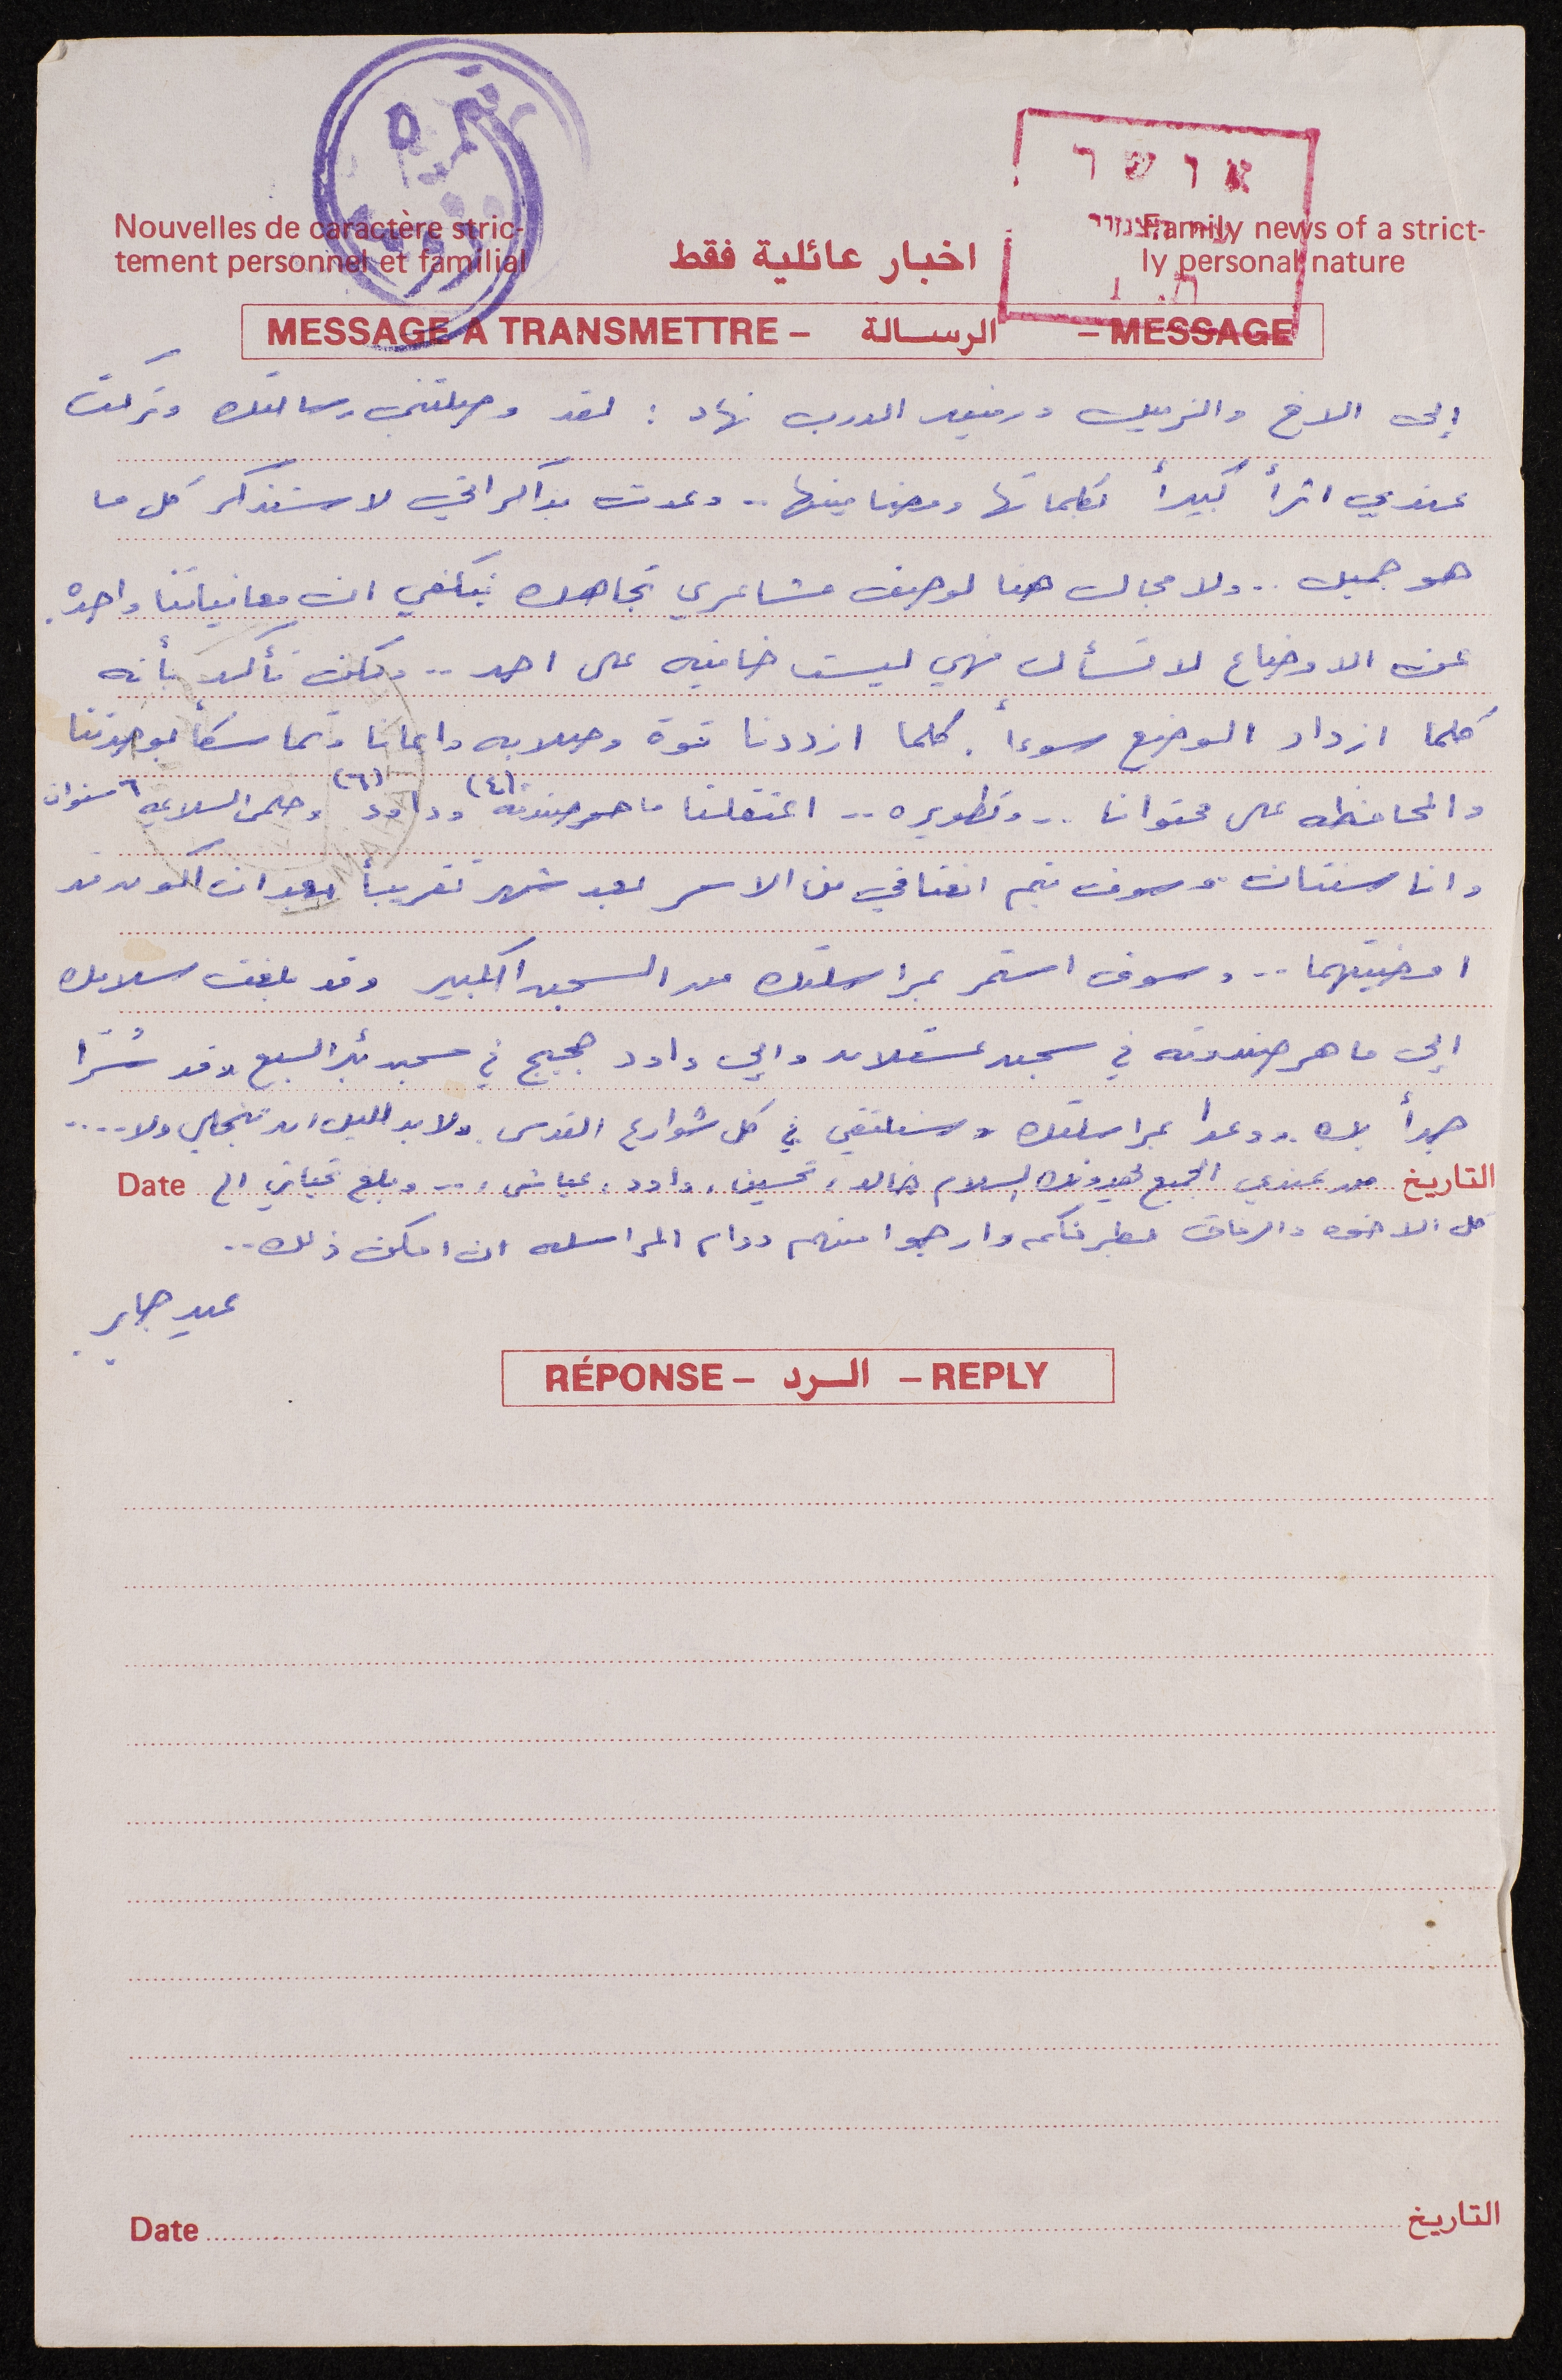 Nouvelles de caractère stric-
tement personnel et familial
اخبار عائلية فقط
Family news of a strict-
ly personal nature
אושר
MESSAGE A TRANSMETTRE – الرسالة – MESSAGE
إلى الاخ والزميل ورفيق الدرب نهاد : لقد وصلتني رسالتك وتركت
عندي اثراً كبيراً بكلماتها ومضامينها .. وعدت بذاكراتي لاستذكر كل ما
هو جميل .. ولا مجال هنا لوصف مشاعري تجاهك فيكفي ان معانياتنا واحده.
عن الاوضاع لا تسأل فهي ليست خافيه على احد .. ولكن تأكد بأنه
كلما ازداد الوضع سوءاً . كلما ازددنا قوة وصلابه وايمانا وتماسكاً بوحدتنا
والمحافظه على محتوانا .. وتطويره .. اعتقلنا ماهر صندوقه (٤) وداود (٦) وحلمي السلايمه ٦ سنوات
وانا سنتان وسوف يتم انعتاقي من الاسر بعد شهر تقريباً بعد ان اكون قد
امضيتهما .. وسوف استمر بمراسلتك من السجن الكبير وقد بلغت سلامك
إلى ماهر صندوقه في سجن عسقلان والى داود حجيج في سجن بئر السبع وقد سُرّا
جداً بك ووعدا بمراسلتك وسنلتقي في كل شوارع القدس ولا بد لليل ان ينجلي ولا ....
التاريخ من عندي الجميع يهدونك السلام خالد، تحسين، داود، عياش، .. وبلغ تحياتي الى Date
كل الاخوه والرفاق بطرفكم وارجوا منهم دوام المراسله ان امكن ذلك ..
عبد جابر
RÉPONSE – الرد – REPLY
Date التاريخ